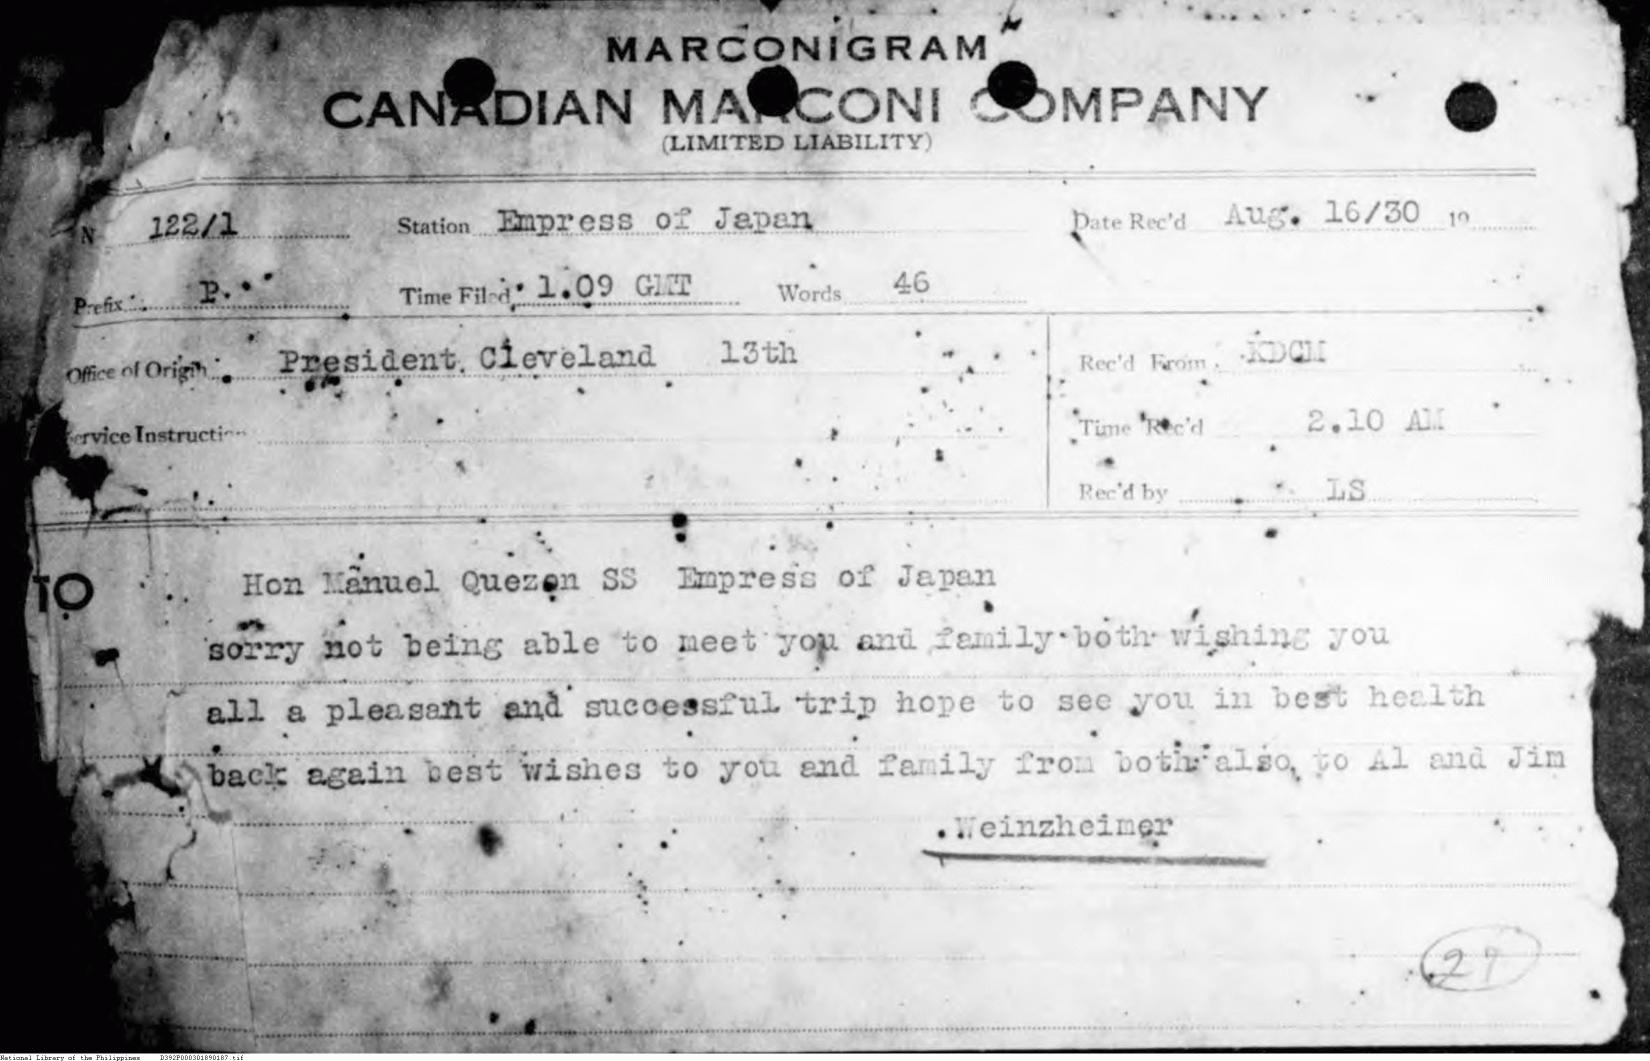 MARCONIGRAM
CANADIAN MARCONI COMPANY
(LIMITED LIABILITY)
N 122/1 Station Empress of Japan Date Rec'd Aug. 16/30 19
Prefix P. Time Filed 1.09 GMT Words 46
Office of Origin President Cleveland 13th Rec'd From KDCM
Service Instructi Time Rec'd 2.10 AM
Rec'd by LS
TO Hon Manuel Quezon SS Empress of Japan
sorry not being able to meet you and family both wishing you
all a pleasant and successful trip hope to see you in best health
back again best wishes to you and family from both also to Al and Jim
Weinzheimer
National Library of the Philippines D392P000301890187.tif